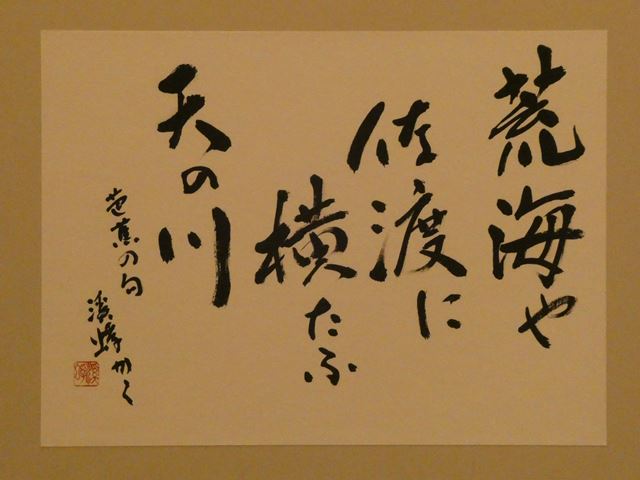 荒海や
佐渡に
横たふ
天の川
芭蕉の句
溪峰かく